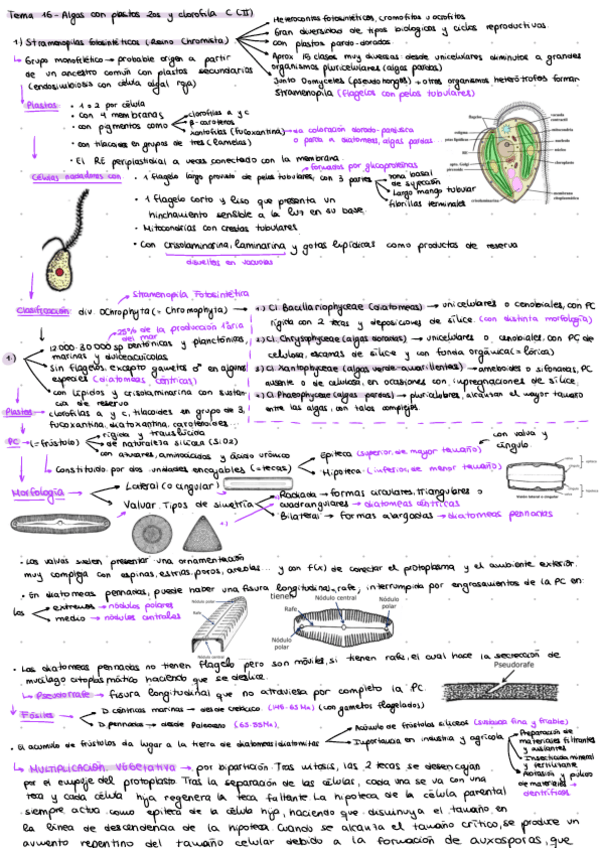 Tema 16 - Algas con plastos 2os y clorofila C (II)
Heterocontas fotosintéticas, cromofitas u ocrofitas
Gran diversidad de tipos biológicos y ciclos reproductivos
1) Stramenopilas fotosintéticas (Reino Chromista)
con plastos pardo-dorados
Aprox 15 clases muy diversas desde unicelulares diminutos a grandes
organismos pluricelulares (algas pardas)
Grupo monofilético → probable origen a partir
de un ancestro común con plastos secundarios
(endosimbiosis con célula algal roja)
Junto Oomycetes (pseudohongos) → otros organismos heterótrofos forman
Stramenopila (flagelos con pelos tubulares)
Plastos
• 1 o 2 por célula
• con 4 membranas
• con pigmentos como
clorofilas a y c
β-carotenos
Xantofilas (fucoxantina) → da coloración dorado-parduzca
o parda a diatomeas, algas pardas
• con tilacoides en grupos de tres (lamelas)
• El RE periplastidial a veces conectado con la membrana
formados por glucoproteínas
Células nadadoras con
• 1 flagelo largo provisto de pelos tubulares, con 3 partes
zona basal
de sujección
Largo mango tubular
fibrillas terminales
• 1 flagelo corto y liso que presenta un
hinchamiento sensible a la luz en su base
• Mitocondrias con crestas tubulares
• Con crisolaminarina, laminarina y gotas lipídicas como productos de reserva
disueltos en vacuolas
Stramenopila Fotosintética
Clasificación div. Ochrophyta (= Chromophyta)
1) Cl. Bacillariophyceae (diatomeas) → unicelulares o cenobiales, con PC
rígida con 2 tecas y deposiciones de sílice. (con distinta morfología)
2) Cl. Chrysophyceae (algas doradas) → unicelulares o cenobiales con PC de
celulosa, escamas de sílice y con funda orgánica (= lórica)
3) Cl. Xantophyceae (algas verde-amarillentas) → ameboides o sifonadas, PC
ausente o de celulosa, en ocasiones con impregnaciones de sílice
4) Cl. Phaeophyceae (algas pardas) → pluricelulares, alcanzan el mayor tamaño
entre las algas, con talos complejos
1)
25% de la producción 1aria
del mar
12000-30000 sp bentónicos y planctónicos,
marinas y dulceacuícolas
Sin flagelos, excepto gametos ♂ en algunas
especies (diatomeas céntricas)
con lípidos y crisolaminarina con sustan-
cia de reserva
Plastos → clorofilas a y c, tilacoides en grupos de 3,
fucoxantina, diatoxantina, carotenoides...
PC → (= frústulo)
rígida y translúcida
de naturaleza silícea (SiO2)
con azúcares, aminoácidos y ácido urónico
Constituido por dos unidades encajables (= tecas)
Epiteca (superior, de mayor tamaño)
Hipoteca (inferior, de menor tamaño)
con valva y
cíngulo
Morfología
Lateral (o cingular)
Valvar. Tipos de simetría
Radiada → formas circulares, triangulares o
cuadrangulares → diatomeas céntricas
Bilateral → formas alargadas → diatomeas pennadas
• Las valvas suelen presentar una ornamentación
muy compleja con espinas, estrías, poros, areolas... y con f(x) de conectar el protoplasma y el ambiente exterior.
• En diatomeas pennadas, puede haber una fisura longitudinal, rafe, interrumpida por engrosamientos de la PC en:
los
extremos → nódulos polares
medio → nódulos centrales
Nódulo polar
Rafe
tienen
Nódulo central
Nódulo
polar
Rafe
Nódulo
polar
• Las diatomeas pennadas no tienen flagelo pero son móviles, si tienen rafe, el cual hace la secreción de
mucílago citoplasmático haciendo que se deslice.
Pseudorafe
Pseudorrafe → fisura longitudinal que no atraviesa por completo la PC.
Fósiles
D. céntricas marinas → desde cretácico (145-65 Ma) (con gametos flagelados)
D. pennada → desde Paleoceno (65-55 Ma)
• El acumulo de frústulos da lugar a la tierra de diatomeas/diatomitas
Acúmulo de frústulos silíceos (sustancia fina y friable)
Importancia en industria y agrícola
Preparación de
materiales filtrantes
y aislantes
Insecticida mineral
y fertilizante
Abrasión y pulido
de materiales →
dentríficos
MULTIPLICACIÓN Vegetativa → por bipartición. Tras mitosis, las 2 tecas se desencajan
por el empuje del protoplasto. Tras la separación de las células, cada una se va con una
teca y cada célula hija regenera la teca faltante. La hipoteca de la célula parental
siempre actúa como epiteca de la célula hija, haciendo que disminuya el tamaño, en
la línea de descendencia de la hipoteca. Cuando se alcanza el tamaño crítico, se produce un
aumento repentino del tamaño celular debido a la formación de auxosporas, que